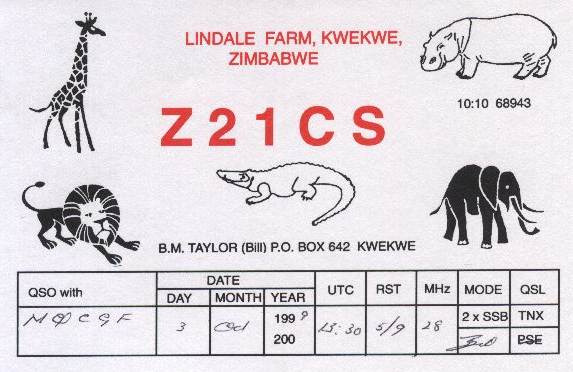 LINDALE FARM, KWEKWE,
ZIMBABWE
10:10 68943
Z21CS
B.M. TAYLOR (Bill) P.O. BOX 642 KWEKWE
QSO with DATE UTC RST MHz MODE QSL
DAY MONTH YEAR
MØCGF 3 Oct 1999 13:30 5/9 28 2 x SSB TNX
200 PSE